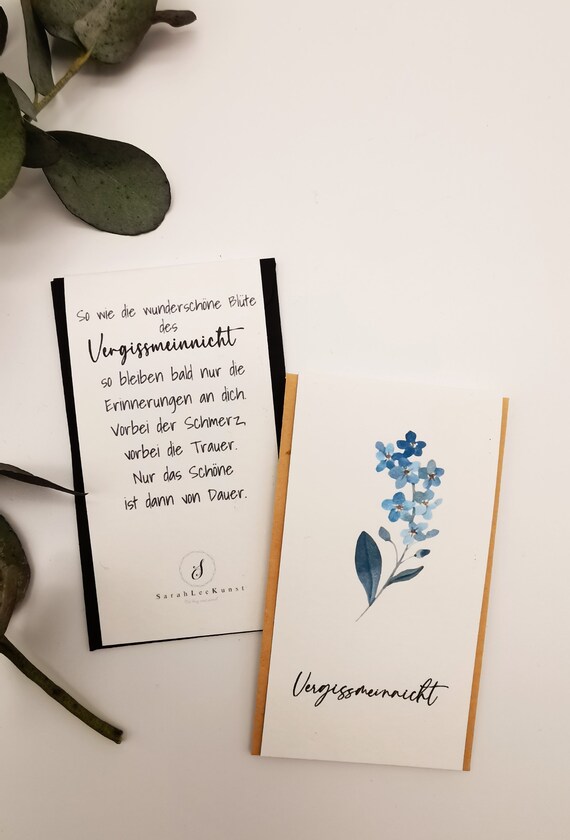 So wie die wunderschöne Blüte
des
Vergissmeinnicht
so bleiben bald nur die
Erinnerungen an dich.
Vorbei der Schmerz,
vorbei die Trauer.
Nur das Schöne
ist dann von Dauer.
S
SarahLeeKunst
Vergissmeinnicht